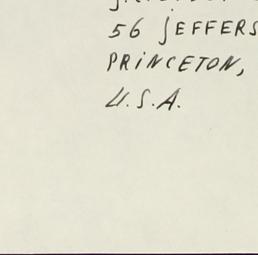 56 JEFFERS
PRINCETON,
U.S.A.